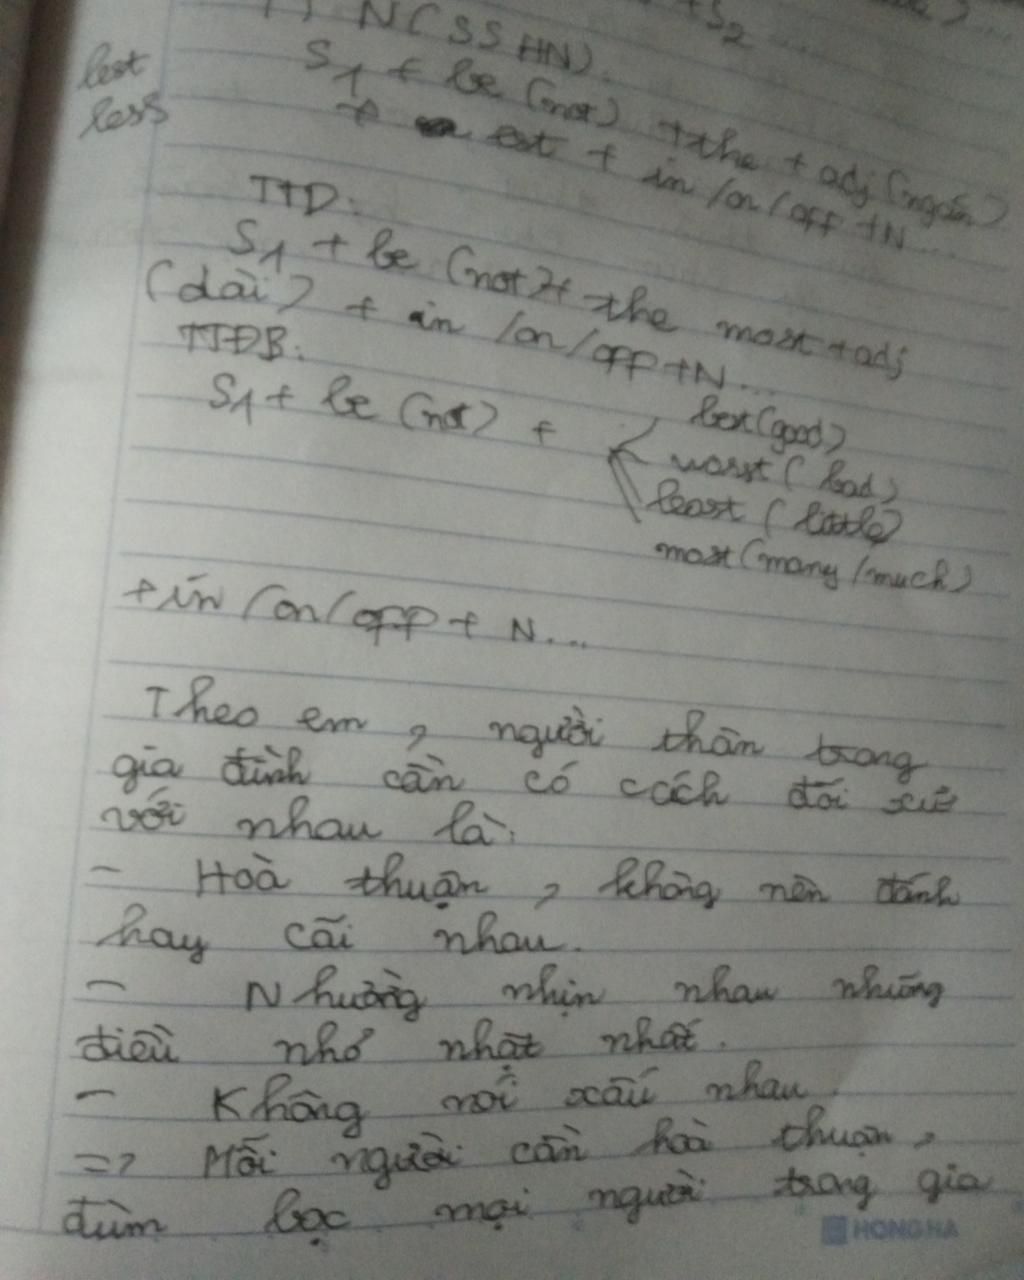 +S2 ...
TTN (SSHN).
lest
S1 + be (not) + the + adj (ngắn)
less
+ est + in / on / off + N...
TTD:
S1 + be (not) + the most + adj
(dài) + in / on / off + N...
TTĐB:
S1 + be (not) +
best (good)
worst (bad)
least (little)
most (many / much)
+ in / on / off + N...
Theo em, người thân trong
gia đình cần có cách đối xử
với nhau là:
- Hoà thuận, không nên đánh
hay cãi nhau.
- Nhường nhịn nhau những
điều nhỏ nhặt nhất.
- Không nói xấu nhau
=> Mỗi người cần hoà thuận,
đùm bọc mọi người trong gia
HONG HA